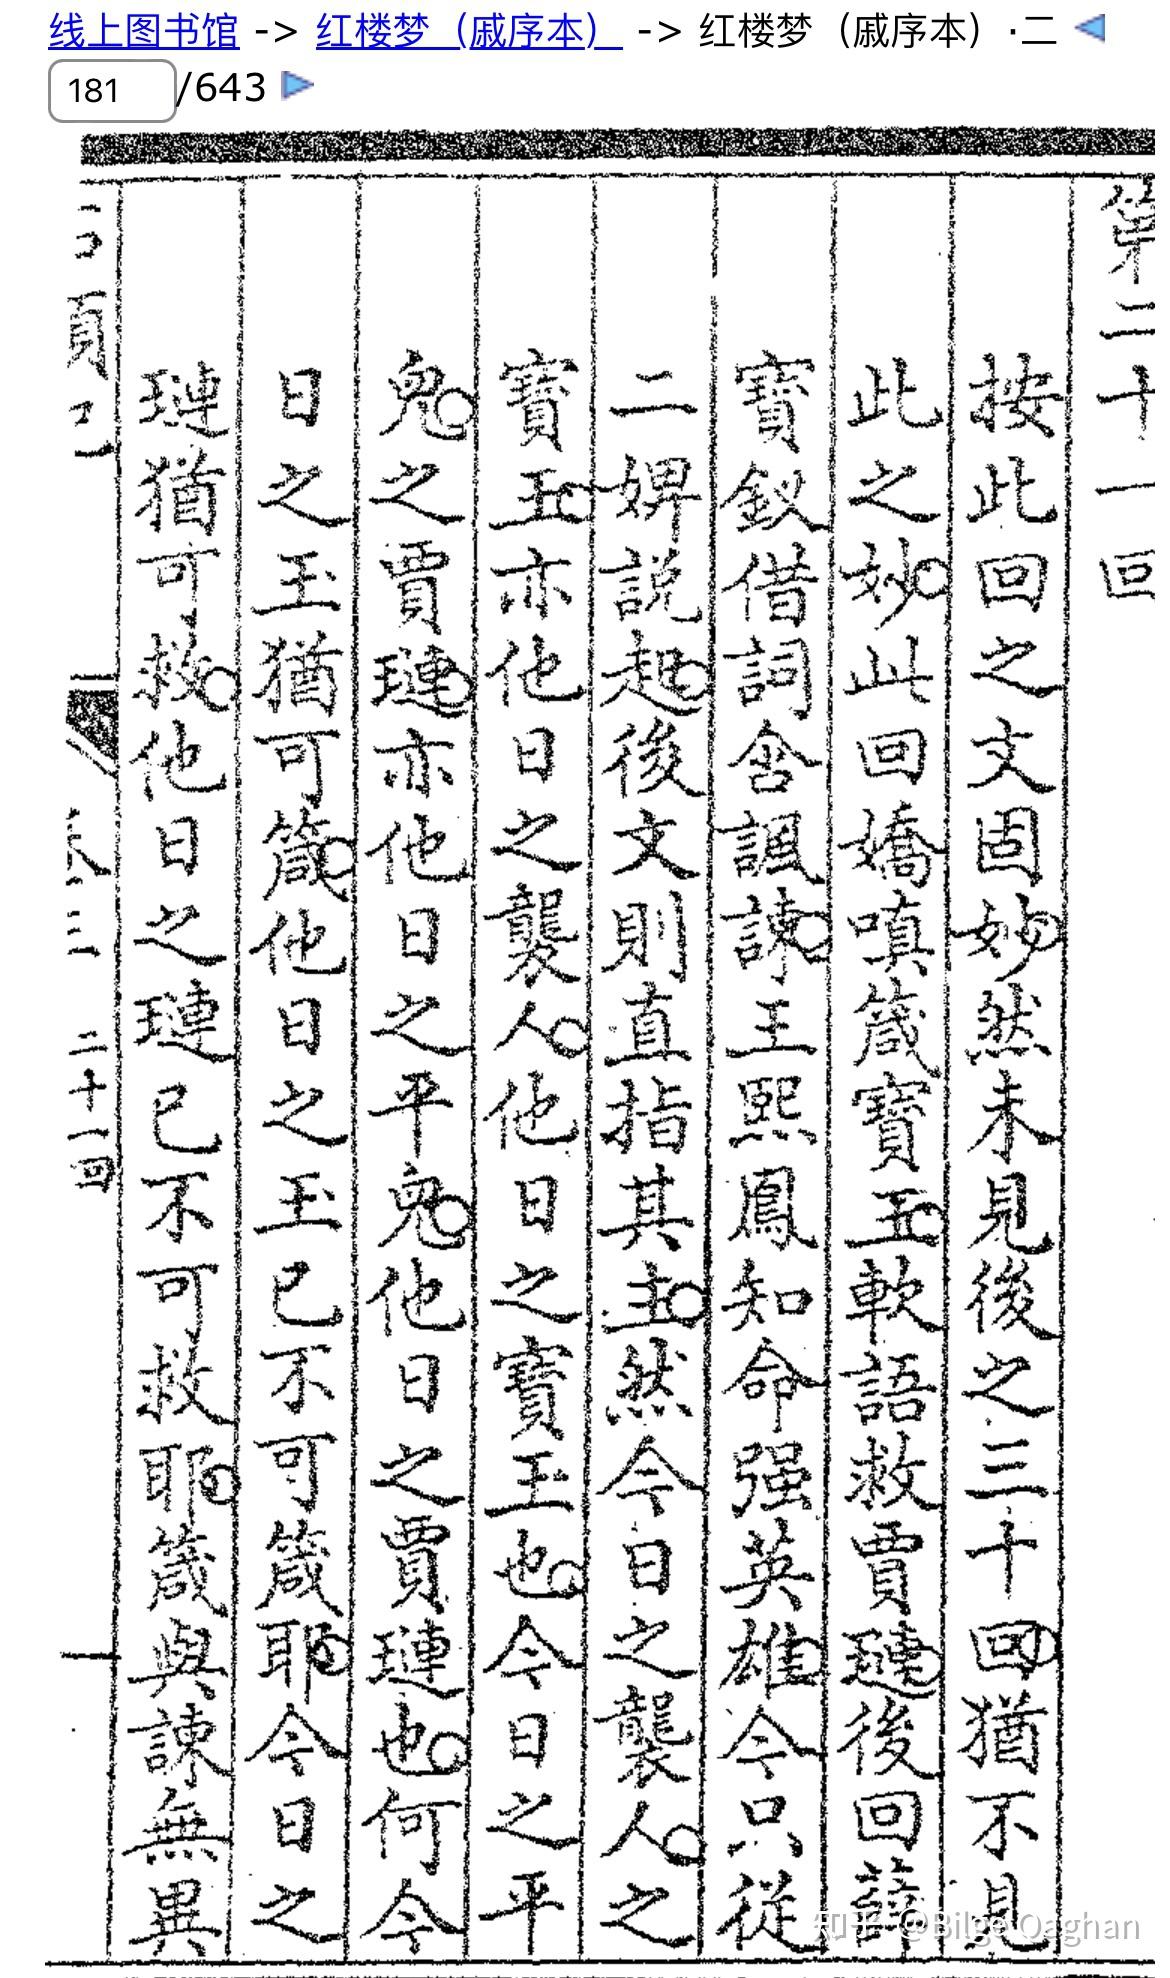 线上图书馆 -> 红楼梦（戚序本） -> 红楼梦（戚序本）·二
181/643
第二十一回
按此回之文固妙然未見後之三十回猶不見
此之妙此回嬌嗔箴寶玉軟語救賈璉後回薛
寶釵借詞含諷諫王熙鳳知命强英雄今只從
二婢説起後文則直指其主然今日之襲人之
寶玉亦他日之襲人他日之寶玉也今日之平
兒之賈璉亦他日之平兒他日之賈璉也何今
日之玉猶可箴他日之玉已不可箴耶今日之
璉猶可救他日之璉已不可救耶箴與諫無異
二十一回
知乎 @Bilge Qaghan